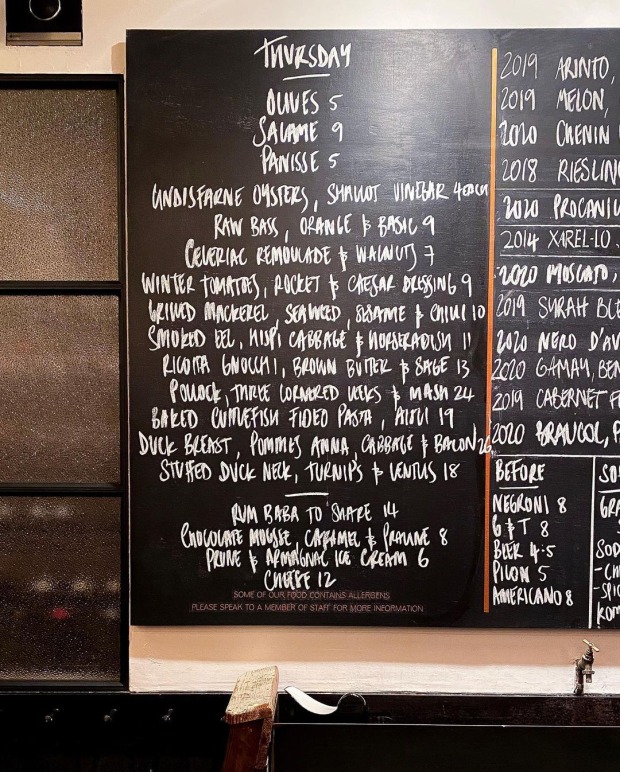 THURSDAY
OLIVES 5
SALAME 9
PANISSE 5
LINDISFARNE OYSTERS, SHALLOT VINEGAR 4 EACH
RAW BASS, ORANGE & BASIL 9
CELERIAC REMOULADE & WALNUTS 7
WINTER TOMATOES, ROCKET & CAESAR DRESSING 9
GRILLED MACKEREL, SEAWEED, SESAME & CHILLI 10
SMOKED EEL, HISPI CABBAGE & HORSERADISH 11
RICOTTA GNOCCHI, BROWN BUTTER & SAGE 13
POLLOCK, THREE CORNERED LEEKS & MASH 24
BAKED CUTTLEFISH FIDEO PASTA, AIOLI 19
DUCK BREAST, POMMES ANNA, CABBAGE & BACON 26
STUFFED DUCK NECK, TURNIPS & LENTILS 18
RUM BABA TO SHARE 14
CHOCOLATE MOUSSE, CARAMEL & PRALINE 8
PRUNE & ARMAGNAC ICE CREAM 6
CHEESE 12
SOME OF OUR FOOD CONTAINS ALLERGENS
PLEASE SPEAK TO A MEMBER OF STAFF FOR MORE INFORMATION
2019 ARINTO,
2019 MELON,
2020 CHENIN
2018 RIESLIN
2020 PROCANIC
2014 XAREL-LO
2020 MOSCATO,
2019 SYRAH BLE
2020 NERO D'AV
2020 GAMAY, BEN
2019 CABERNET F
2020 BRAUCOL, P
BEFORE
NEGRONI 8
G & T 8
BEER 4.5
PILON 5
AMERICANO 8
SO
GRA
SOD
-CH
-SPIC
KOM